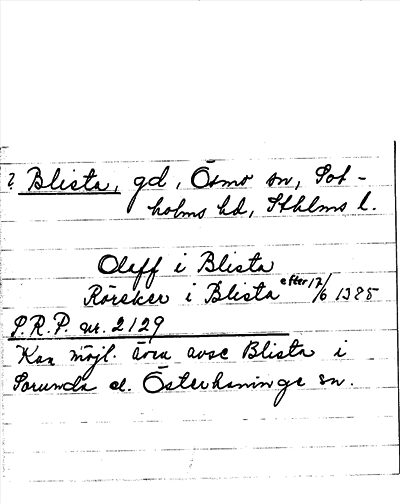 ? Blista, gd, Ösmo sn, Sot-
holms hd, Sthlms l.
Oleff i Blista
Röreker i Blista efter 17/6 1385
P.R.P. nr. 2129
Kan möjl. även avse Blista i
Sorunda el. Österhaninge sn.